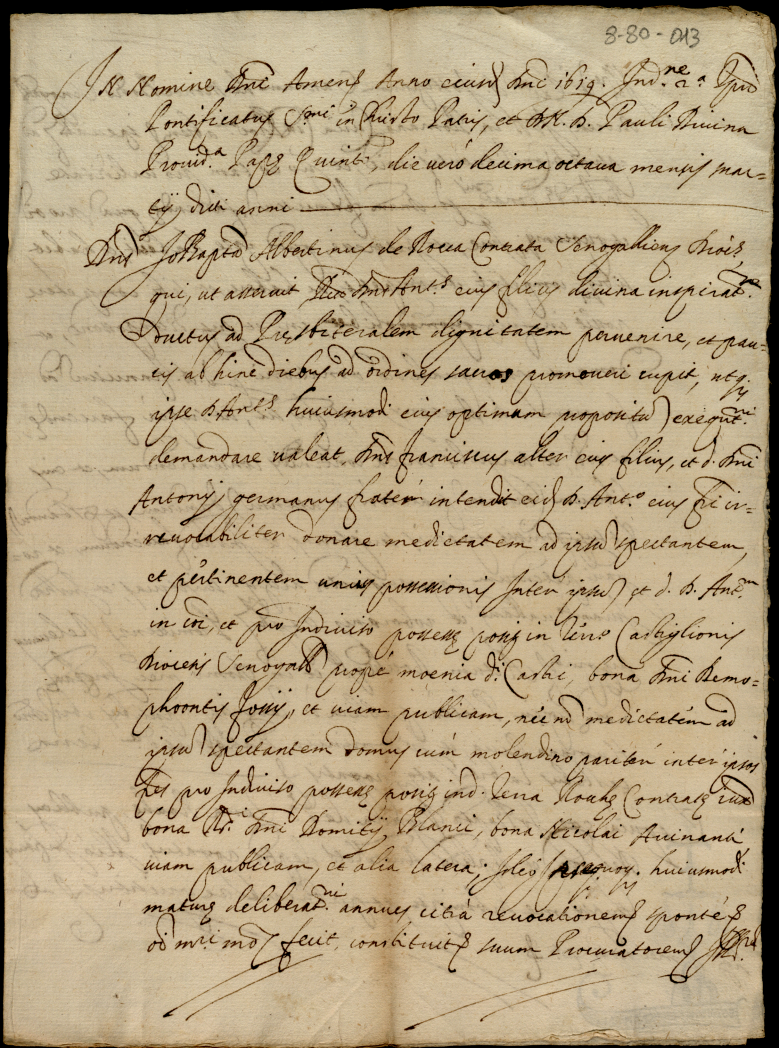 8-80-013
In Nomine Dni Amen Anno eiusd Dni 1619. Ind.ne 2.a
Pontificatus S.mi in Christo Patris, et D.N. D. Pauli Divina
Provid.a Papę Quinti, die verò decima octava mensis mar=
tij dicti anni
Dns Jo Bapta Albertinus de Rocca Contrata Senogallien Diois,
qui, ut asseruit D. Ant.s eius filius divina inspirat.ne
Ductus ad Pręsbiteralem dignitatem pervenire, et pau=
cis ab hinc diebus ad ordines sacros promoveri cupit, utq.
ipse D. Ant.s huiusmodi eius optimum propositu exequt.ni
demandare valeat, Dns franciscus alter eius filius, et d. Dni
Antonij germanus frater intendit eid D. Ant.o eius fri ir=
revocabiliter donare medietatem ad ipsu spectantem,
et pertinentem unius possessionis Inter ipsu et d. D. Ant.m
in coi, et pro Indiviso possessę positę in terr.o Castiglionis
Diocesis Senogall propè moenia d.i Castri, bona Dni Demo=
phoontis Josij, et viam publicam, nec nò medietatem ad
ipsu spectantem domus cum molendino pariter inter ipsos
fres pro Indiviso possessę positę in d. terra Rochę Contratę iuxta
bona Dni Domitij Blanci, bona Nicolai Avinanti
viam publicam, et alia latera; huiusmodi
maturę deliberat.ni annues citrà revocationem spontè
oi m.ri mo fecit, constituit suum Procuratorem